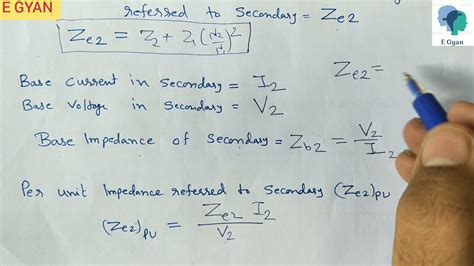 E GYAN
referred to Secondary = Ze2
Ze2 = Z2 + Z1 (N2/N1)²
E Gyan
Ze2 =
Base Current in Secondary = I2
Base Voltage in Secondary = V2
Base Impedance of Secondary = Zb2 = V2/I2
Per unit Impedance referred to Secondary (Ze2)PU
(Ze2)PU = Ze2 I2/V2